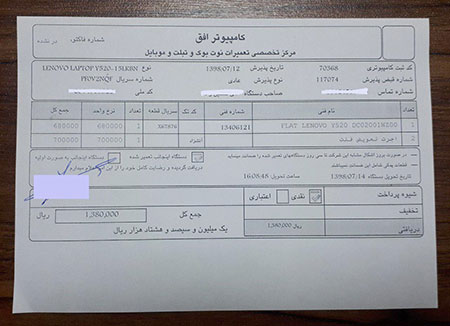 کامپیوتر افق
مرکز تخصصی تعمیرات نوت بوک و تبلت و موبایل
شماره فاکتور:
کد ثبت کامپیوتری 70368 تاریخ پذیرش 1398/07/12 نوع LENOVO LAPTOP Y520-15IKBN
شماره قبض پذیرش 117074 نوع پذیرش عادی شماره سریال PF0V2NQF
شماره تماس صاحب دستگاه کد ملی
نام فنی شماره فنی کد تگ سریال قطعه تعداد نرخ واحد جمع کل
1 FLAT LENOVO Y520 DC02001WZ00 13406121 1 680000 680000
2 اجرت تعویض فلت 1 700000 700000
دستگاه اینجانب تعمیر شده دستگاه اینجانب به صورت اولیه
تاریخ تحویل دستگاه 1398/07/14 ساعت تحویل 16:05:45
شیوه پرداخت نقدی اعتباری
تخفیف
دریافتی 1,380,000 ریال
جمع کل 1,380,000 ریال
یک میلیون و سیصد و هشتاد هزار ریال